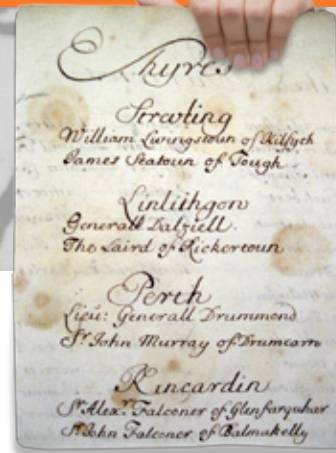 Shyres
Strewling
William Livingstoun of Kilsyth
James Seatoun of Tough
Linlithgon
Generall Dalziell.
The Laird of Rickertoun
Perth
Lieu: Generall Drummond
Sr. John Murray of Drumcarn
Kincardin
Sr. Alexr. Falconer of Glenfarquhar
Sr. John Falconer of Balmakelly